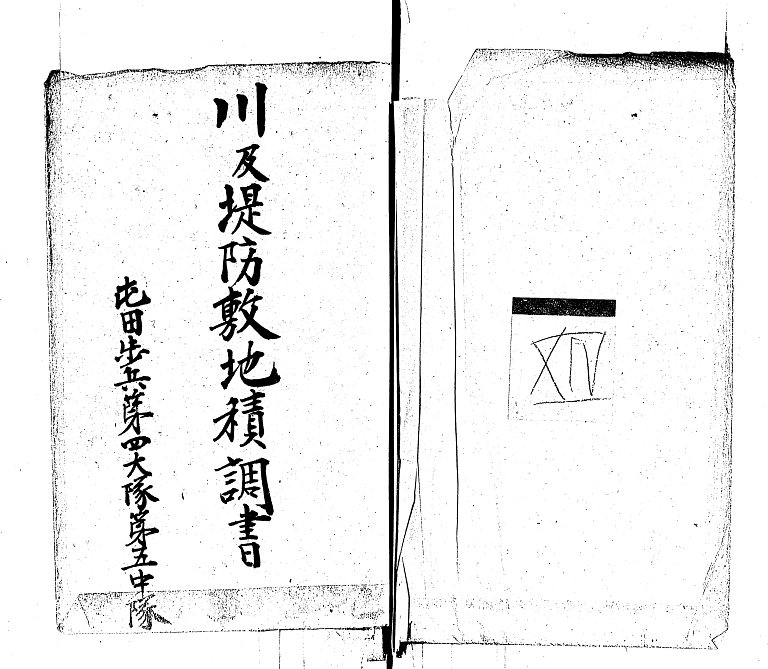 川及堤防敷地積調書
屯田歩兵第四大隊第五中隊
XIV